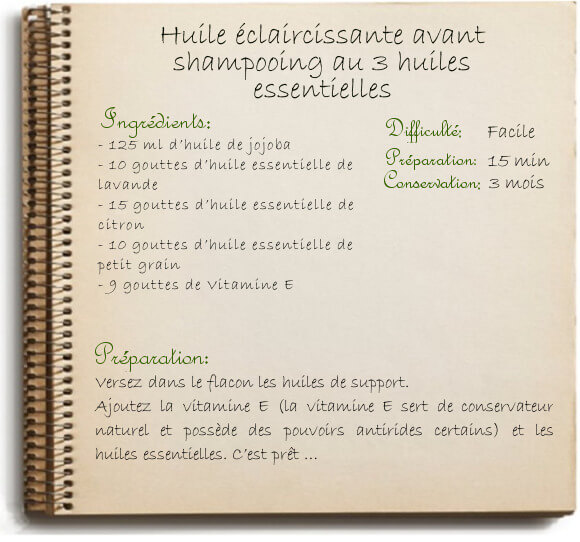 Huile éclaircissante avant
shampooing au 3 huiles
essentielles
Ingrédients:
- 125 ml d'huile de jojoba
- 10 gouttes d'huile essentielle de
lavande
- 15 gouttes d'huile essentielle de
citron
- 10 gouttes d'huile essentielle de
petit grain
- 9 gouttes de Vitamine E
Difficulté: Facile
Préparation: 15 min
Conservation: 3 mois
Préparation:
Versez dans le flacon les huiles de support.
Ajoutez la vitamine E (la vitamine E sert de conservateur
naturel et possède des pouvoirs antirides certains) et les
huiles essentielles. C'est prêt ...